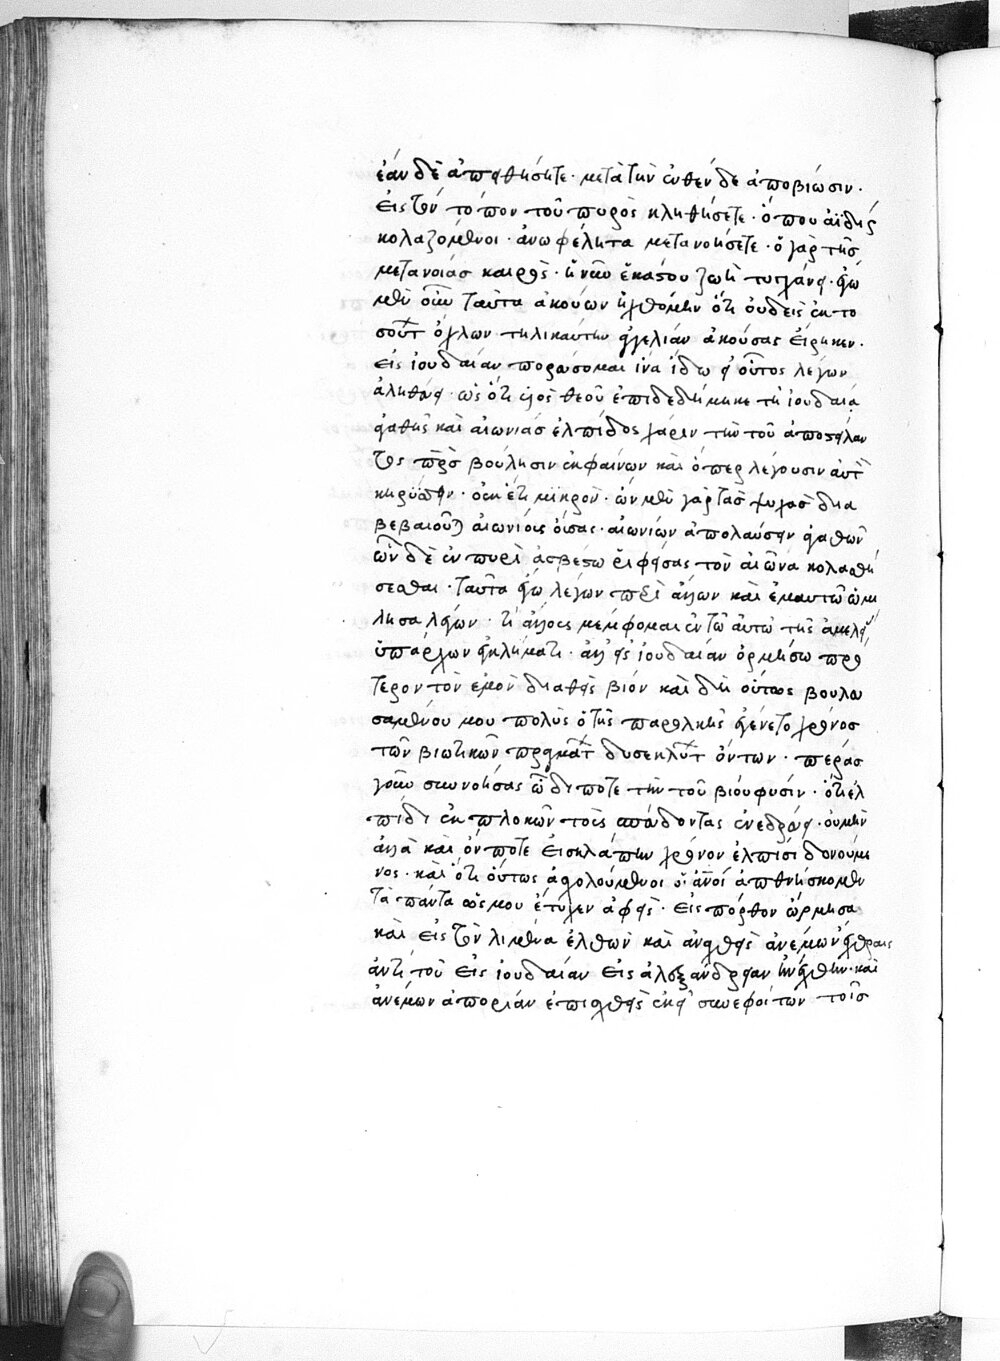 ἐὰν δὲ ἀπειθήσητε· μετὰ τὴν ἐνθένδε ἀποβίωσιν·
εἰς τὸν τόπον τοῦ πυρὸς κληθήσεσθε· ὅπου ἀϊδίως
κολαζόμενοι· ἀνωφέλητα μετανοήσετε· ὁ γὰρ τῆς
μετανοίας καιρὸς· ἡ νῦν ἑκάστου ζωὴ τυγχάνει· ἐγὼ
μὲν οὖν ταῦτα ἀκούων ἠχθόμην ὅτι οὐδεὶς ἐκ το
σούτων ὄχλων τηλικαύτην ἀγγελίαν ἀκούσας εἴρηκεν·
εἰς ἰουδαίαν πορεύσομαι ἵνα ἴδω εἰ οὗτος λέγων
ἀληθεύει· ὡς ὅτι υἱὸς θεοῦ ἐπιδεδήμηκε τῇ ἰουδαίᾳ
ἀγαθῆς καὶ αἰωνίας ἐλπίδος χάριν τὴν τοῦ ἀποστείλαν
τος πατρὸς βούλησιν ἐκφαίνων καὶ ὅπερ λέγουσιν αὐτὸν
κηρύσσειν· οὐκ ἔστι μικρὸν· ὧν μὲν γὰρ τὰς ψυχὰς δια
βεβαιοῦται αἰωνίοις οὔσας· αἰωνίων ἀπολαύσειν ἀγαθῶν
ὧν δὲ ἐν πυρὶ ἀσβέστῳ ῥιφείσας τὸν αἰῶνα κολασθή
σεσθαι· ταῦτα ἐγὼ λέγων περὶ ἄλλων καὶ ἐμαυτῷ ὡμί
λησα λέγων· τί ἄλλοις μέμφομαι ἐν τῷ αὐτῷ τῆς ἀμελείας
ὑπάρχων ἐγκλήματι· ἀλλ' εἰς ἰουδαίαν ὁρμήσω πρό
τερον τὸν ἐμὸν διαθεὶς βίον καὶ δὴ οὕτως βουλευ
σαμένου μου πολὺς ὁ τῆς παρολκῆς ἐγένετο χρόνος
τῶν βιωτικῶν πραγμάτων δυσεκλύτων ὄντων· πέρας
γοῦν συννοήσας ὧδέ ποτε τὴν τοῦ βίου φύσιν· ὅτι ἐλ
πίδι ἐκπλοκῶν τοὺς σπεύδοντας ἐνεδρεύει· οὐ μὴν
ἀλλὰ καὶ ὁπόποτε εἰσκλάπην χρόνον ἐλπίσι δονούμε
νος· καὶ ὅτι οὕτως ἀσχολούμενοι οἱ ἄνθρωποι ἀποθνήσκομεν
τὰ πάντα ὥς μου ἔτυχεν ἀφεὶς· εἰς πόρθον ὥρμησα
καὶ εἰς τὸν λιμένα ἐλθὼν καὶ ἀναχθεὶς ἀνέμων ἔχθραις
ἀντὶ τοῦ εἰς ἰουδαίαν εἰς ἀλεξάνδρειαν ἠνέχθην· καὶ
ἀνέμων ἀπορίαν ἐπισχεθεὶς ἐκεῖ συνεφοίτων τοῖς